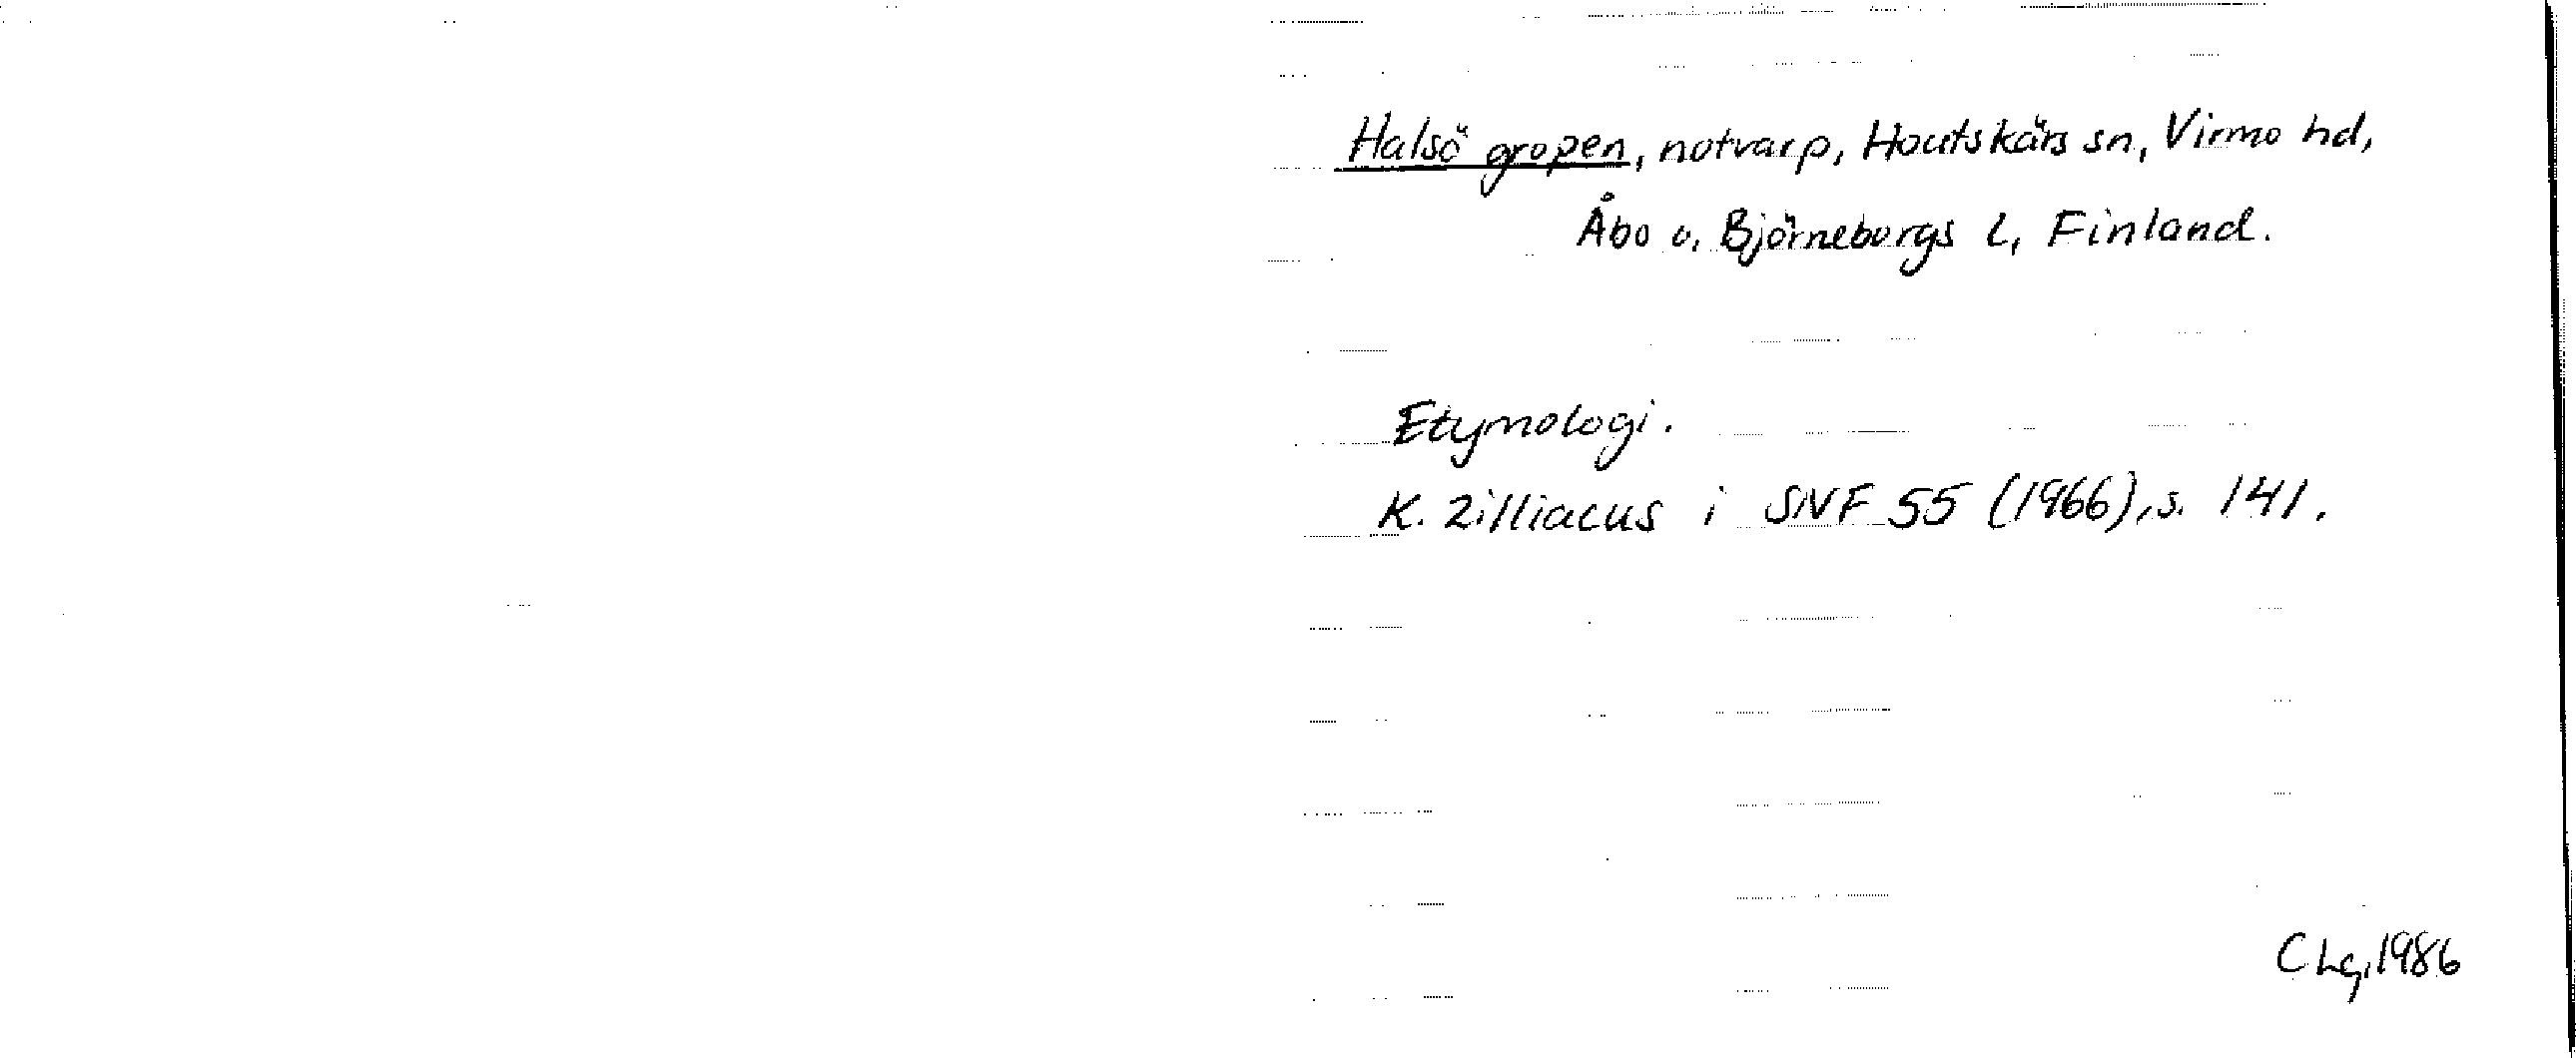 Halsö gropen, notvarp, Houtskärs sn, Virmo hd,
Åbo o. Björneborgs l, Finland.
Etymologi.
K. Zilliacus i SNF 55 (1966), s. 141.
CLg, 1986